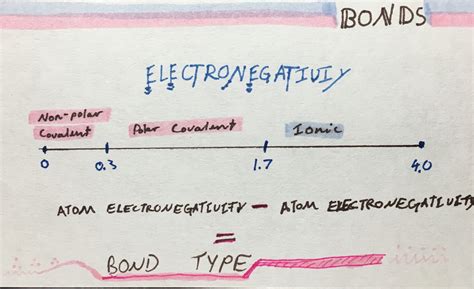 BONDS
ELECTRONEGATIVIY
Non-polar
Covalent
Polar Covalent
Ionic
0 0.3 1.7 4.0
ATOM ELECTRONEGATIVITY - ATOM ELECTRONEGATIVITY
=
BOND TYPE